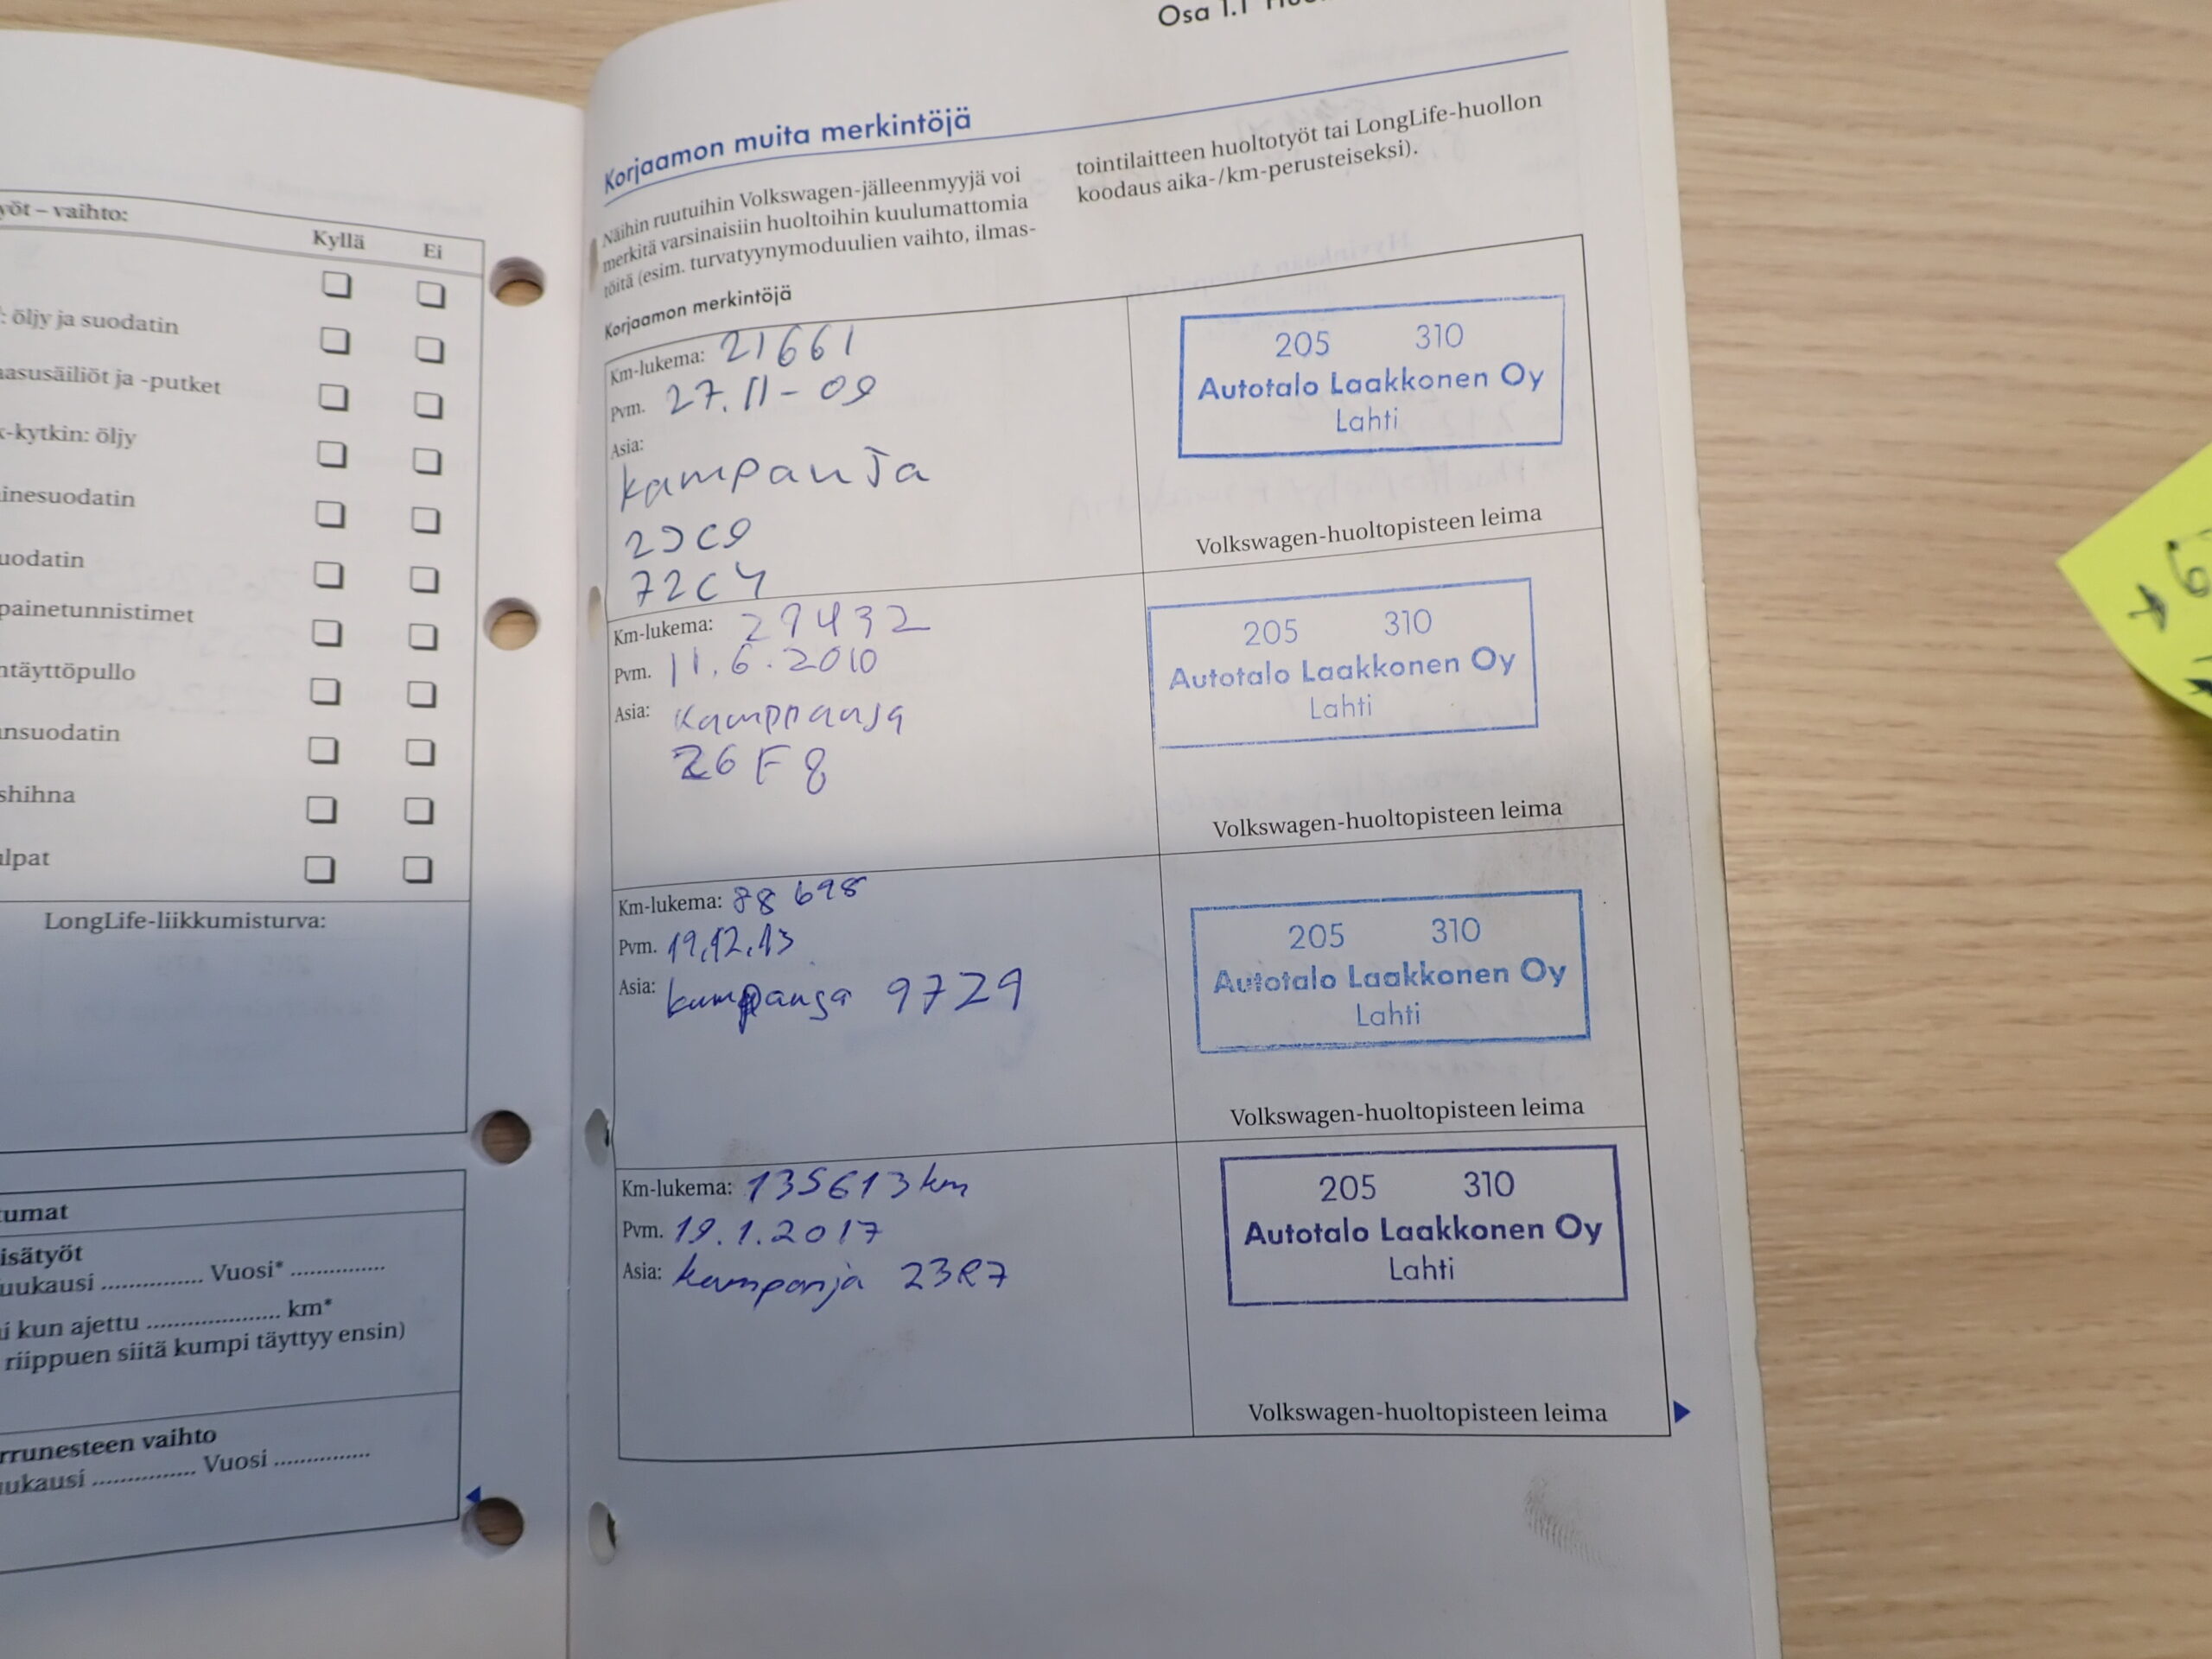 yöt – vaihto:
Kyllä Ei
: öljy ja suodatin
asusäiliöt ja -putket
-kytkin: öljy
inesuodatin
uodatin
painetunnistimet
ntäyttöpullo
nsuodatin
shihna
lpat
LongLife-liikkumisturva:
tumat
isätyöt
uukausi ............... Vuosi* ..............
i kun ajettu .................... km*
riippuen siitä kumpi täyttyy ensin)
rrunesteen vaihto
uukausi ............... Vuosi ..............
Osa 1.1
Korjaamon muita merkintöjä
Näihin ruutuihin Volkswagen-jälleenmyyjä voi
merkitä varsinaisiin huoltoihin kuulumattomia
töitä (esim. turvatyynymoduulien vaihto, ilmas-
tointilaitteen huoltotyöt tai LongLife-huollon
koodaus aika-/km-perusteiseksi).
Korjaamon merkintöjä
Km-lukema: 21661
Pvm. 27.11-09
Asia:
kampanja
72C4
205 310
Autotalo Laakkonen Oy
Lahti
Volkswagen-huoltopisteen leima
Km-lukema: 29432
Pvm. 11.6.2010
Asia: Kamppanja
26F8
205 310
Autotalo Laakkonen Oy
Lahti
Volkswagen-huoltopisteen leima
Km-lukema: 88 698
Pvm. 19.12.13
Asia: kamppanja 9729
205 310
Autotalo Laakkonen Oy
Lahti
Volkswagen-huoltopisteen leima
Km-lukema: 135613 km
Pvm. 19.1.2017
Asia: kampanja 23R7
205 310
Autotalo Laakkonen Oy
Lahti
Volkswagen-huoltopisteen leima